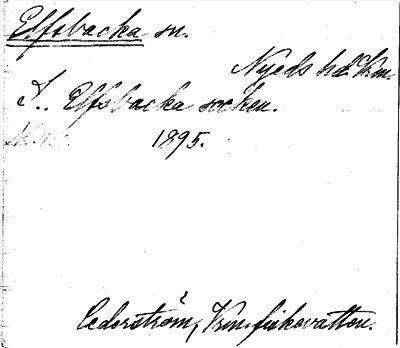 Elfsbacka sn.
Nyeds hd. Vrm.
S. Elfsbacka socken.
1895.
Cederström, Vrm. fiskevatten.